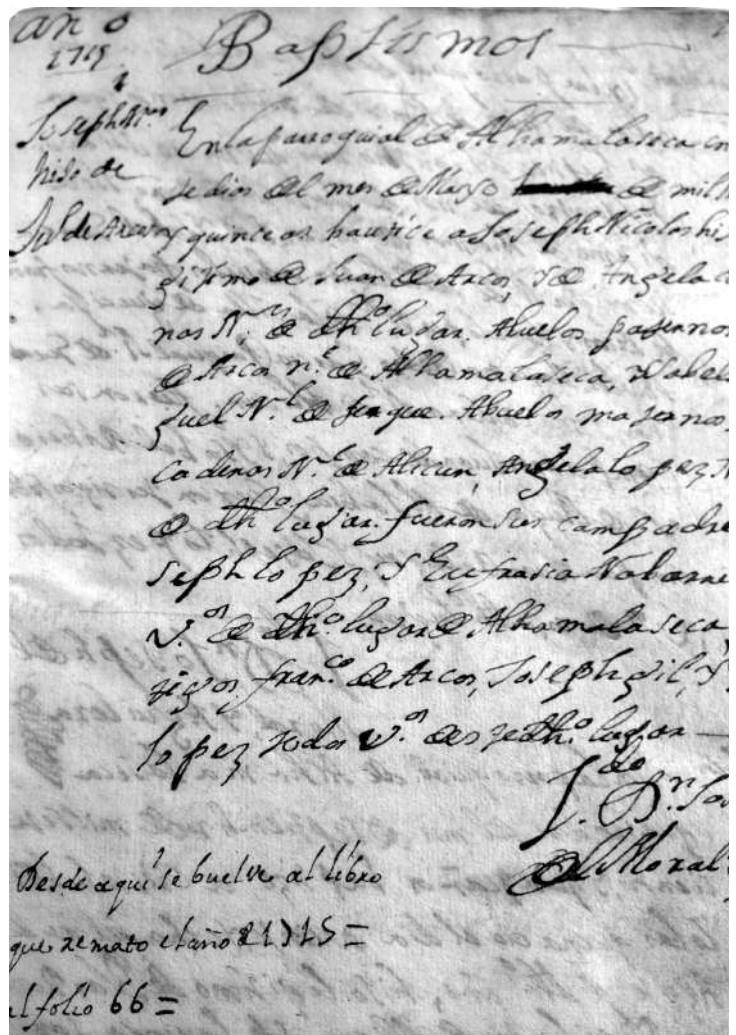 año
1715
Baptismos
1
Joseph Nicos
hijo de
Ju. de Arcos
En la parroquial de Alhamalaseca en
se dias del mes de Marzo de mil
y quince as bautice a Joseph Nicolas hi
gitimo de Juan de Arcos, y de Angela ca
nas N.es de dho lugar. Abuelos paternos
de Arcos n.l de Alhamalaseca, Ysabel
guel N.l de ferque. Abuelos maternos,
Cadenas N.l de Alicun, Angela lopez N
de dho lugar. fueron sus compadre
seph lopez, y Eufrasia Nabarre
v.os de dho lugar de Alhamalaseca,
tigos fran.co de Arcos, Joseph gil, Y
lopez todos v.os de este dho lugar
L.do D.n Jos
del Moral
Desde aqui se buelve al libro
que remato el año d 1715 =
al folio 66 =